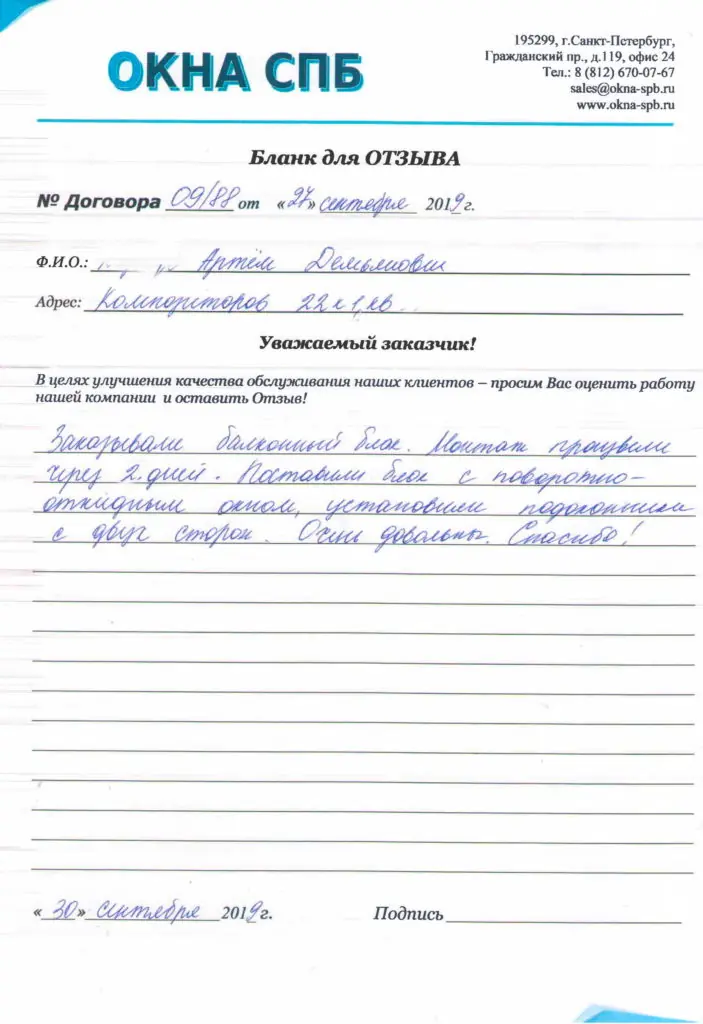 ОКНА СПБ
195299, г.Санкт-Петербург,
Гражданский пр., д.119, офис 24
Тел.: 8 (812) 670-07-67
sales@okna-spb.ru
www.okna-spb.ru
Бланк для ОТЗЫВА
№ Договора 09/88 от «27» сентября 2019 г.
Ф.И.О.: Артём Демьянович
Адрес: Композиторов 22 к 1, кв
Уважаемый заказчик!
В целях улучшения качества обслуживания наших клиентов – просим Вас оценить работу
нашей компании и оставить Отзыв!
Заказывали балконный блок. Монтаж произвели
через 2 дней. Поставили блок с поворотно-
откидным окном, установили подоконники
с двух сторон. Очень довольны. Спасибо!
«30» сентября 2019 г. Подпись